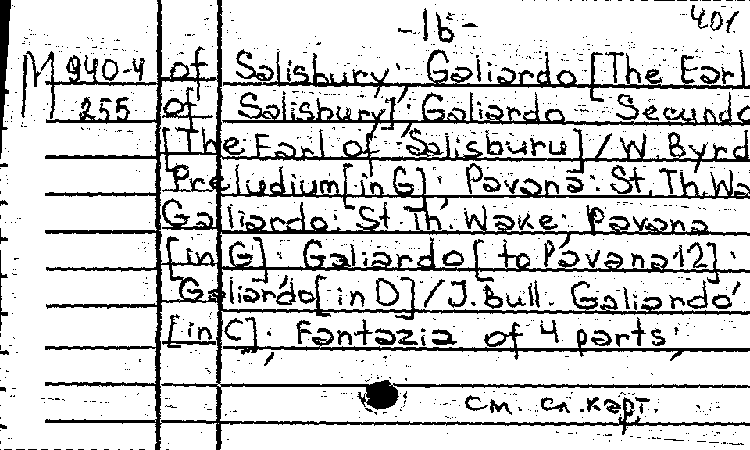 -1б-
401
M 940-4 of Salisbury; Galiardo [The Earl
255 of Salisbury]; Galiardo Secundo
[The Earl of Salisbury] / W. Byrd
Preludium [in G]; Pavana: St. Th. Wa
Galiardo: St. Th. Wake; Pavana
[in G]; Galiardo [to Pavana 12];
Galiardo [in D] / J. Bull. Galiardo
[in C]; Fantazia of 4 parts;
см. сл. карт.